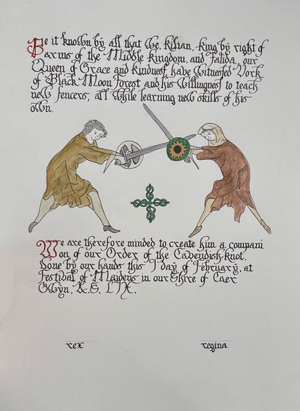 Be it known by all that We, Kilian, King by right of
arms of the Middle Kingdom, and Talida, our
Queen of Grace and kindness, have Witnessed York
of Black Moon Forest and his Willingness to teach
new fencers, all While learning new skills of his
own.
We are therefore minded to create him a compani
on of our Order of the Cavendish Knot.
Done by our hands this 1 day of February, at
Festival of Maidens in our Shire of Caer
A.S. LIX.
rex
regina